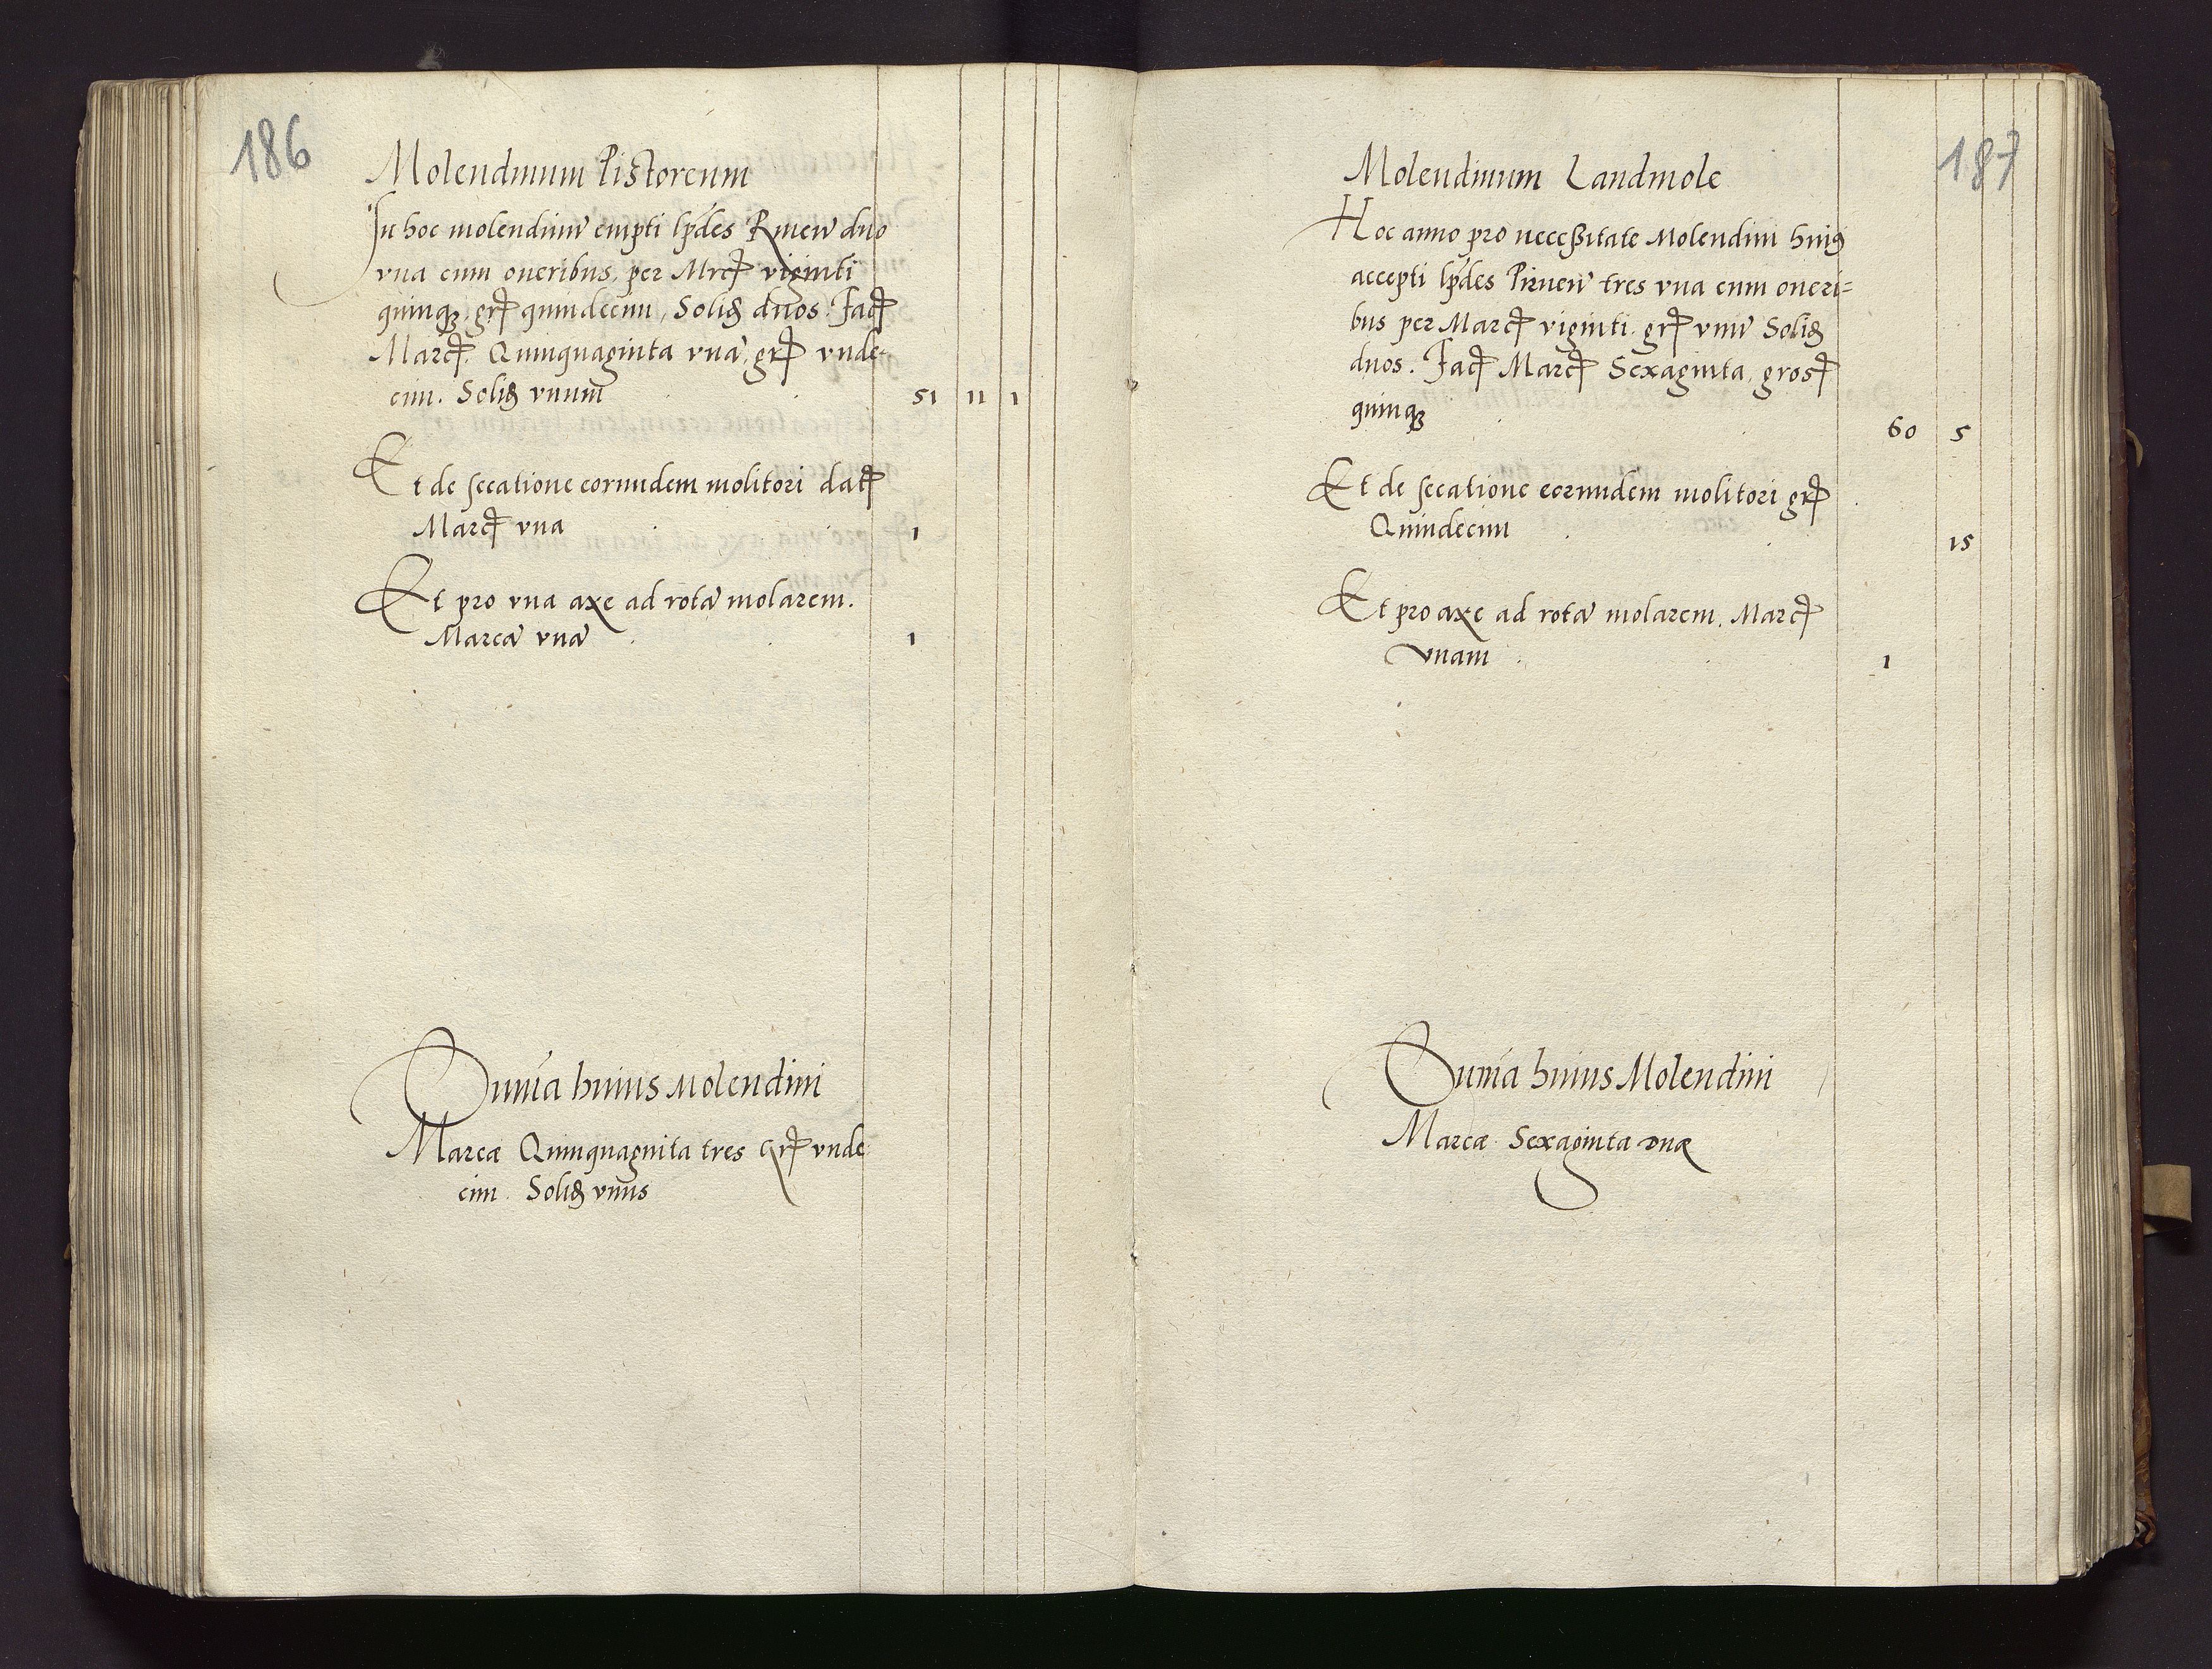 186
Molendinum Pistoreum
In hoc molendinũ empti lp̃des Rinen̄ duo
vna cum oneribus, per Mrcꝭ viginti
quinqꝫ, grꝭ quindecim, Solidꝭ duos. Facꝭ
Marcꝭ. Quinquaginta vnã, grꝭ vnde-
cim. Solidꝭ vnum 51 11 1
Et de secatione eorundem molitori datꝭ
Marcꝭ vna 1
Et pro vna axe ad rotã molarem.
Marcã vnã 1
Sum̃a huius Molendini
Marcæ Quinquaginta tres Grꝭ vnde
cim. Solidꝭ vnus
187
Molendinum Landmole
Hoc anno pro neceßitate Molendini huiꝰ
accepti lp̃des Pirnen̄ tres vna cum oneri=
bus per Marcꝭ viginti. grꝭ vnũ Solidꝭ
duos. Facꝭ Marcꝭ Sexaginta, grosꝭ
quinqꝫ 60 5
Et de secatione eorundem molitori grꝭ
Quindecim 15
Et pro axe ad rotã molarem. Marcꝭ
vnam 1
Sum̃a huius Molendini
Marcæ Sexaginta vnæ